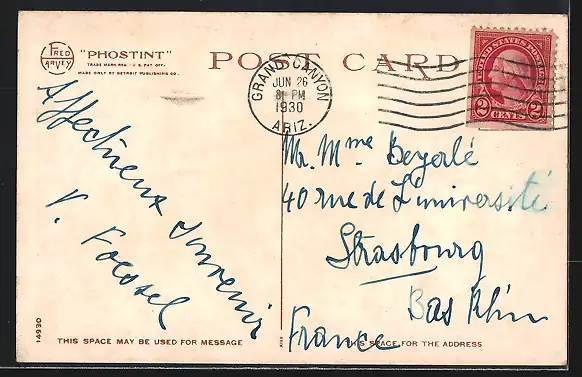 FRED HARVEY
"PHOSTINT"
TRADE MARK REG. U.S. PAT. OFF.
MADE ONLY BY DETROIT PUBLISHING CO.
POST CARD
GRAND CANYON
JUN 26
PM
1930
ARIZ.
UNITED STATES POSTAGE
2 CENTS 2
Affectueux Souvenir
V.
Mr. Mme Beyerlé
40 rue de L'université
Strasbourg
Bas Rhin
France
14930
THIS SPACE MAY BE USED FOR MESSAGE
THIS SPACE FOR THE ADDRESS